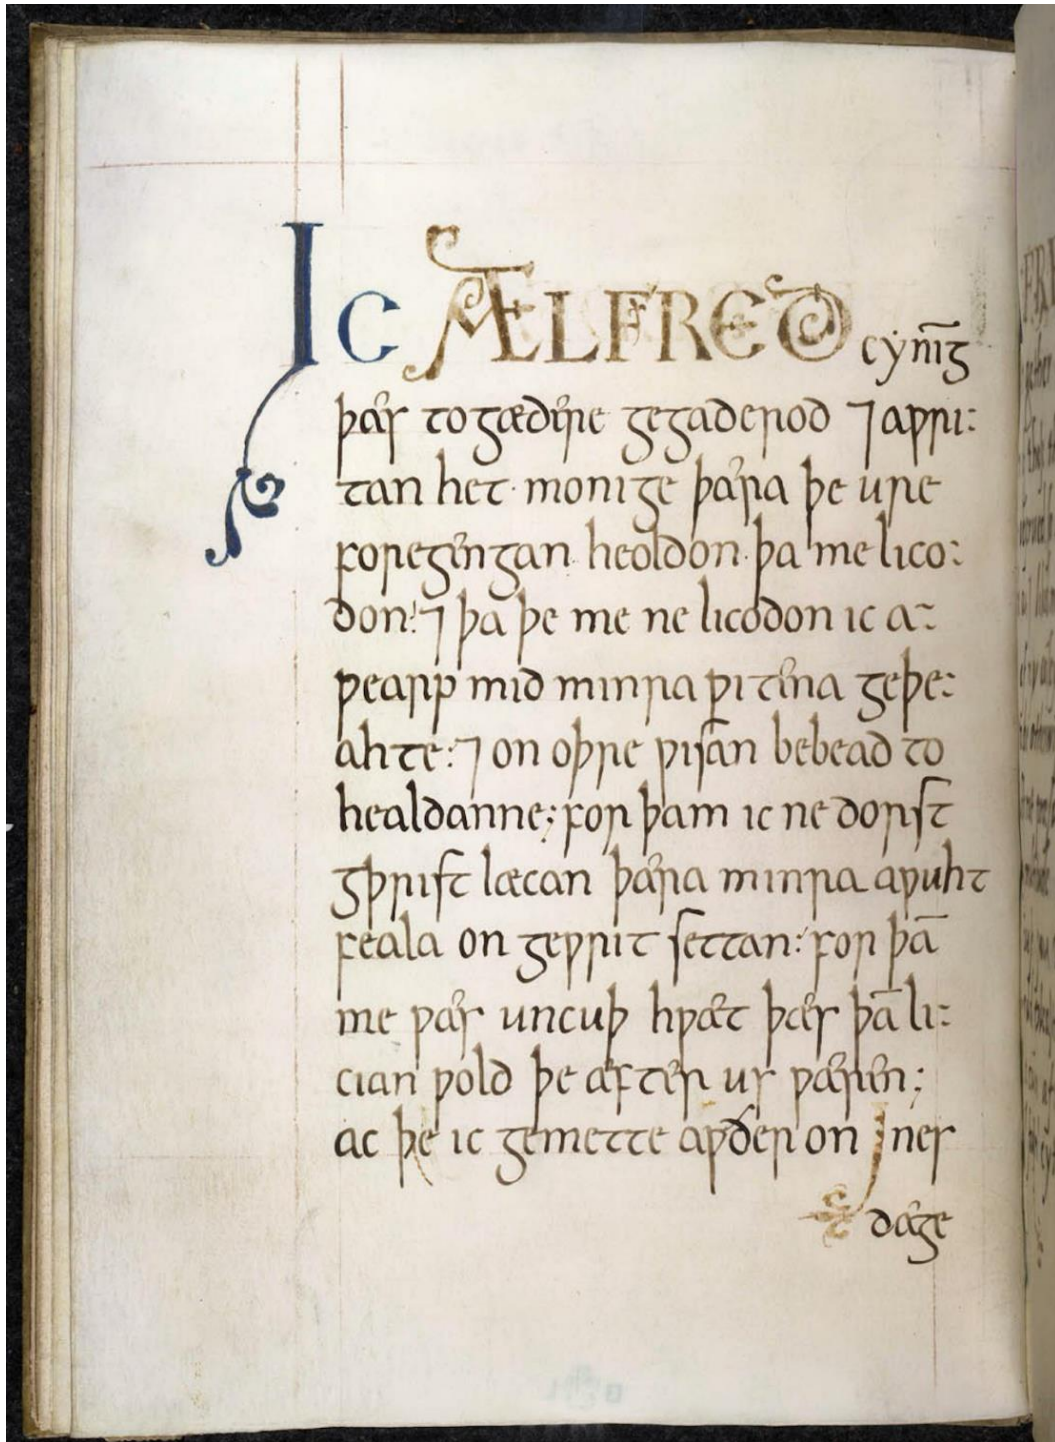 Ic ÆLFRED cynı̅g
þæs togædere gegaderod ⁊ aƿri:
tan het· monige þæra þe ure
foregengan· heoldon· þa me lico:
don:⁊ þa þe me ne licodon ic a:
ƿearp mid minra ƿitena geþe:
ahte:⁊ on oþre ƿisan bebead to
healdanne; for þam ic ne dorst
gþrist læcan þæra minra aƿuht
feala on geƿrit settan: for þā
me ƿæs uncuþ hƿæt þæs þā li:
cian ƿold þe æfter us ƿæren;
ac þe ic gemette aƿðer on Ines
dæge